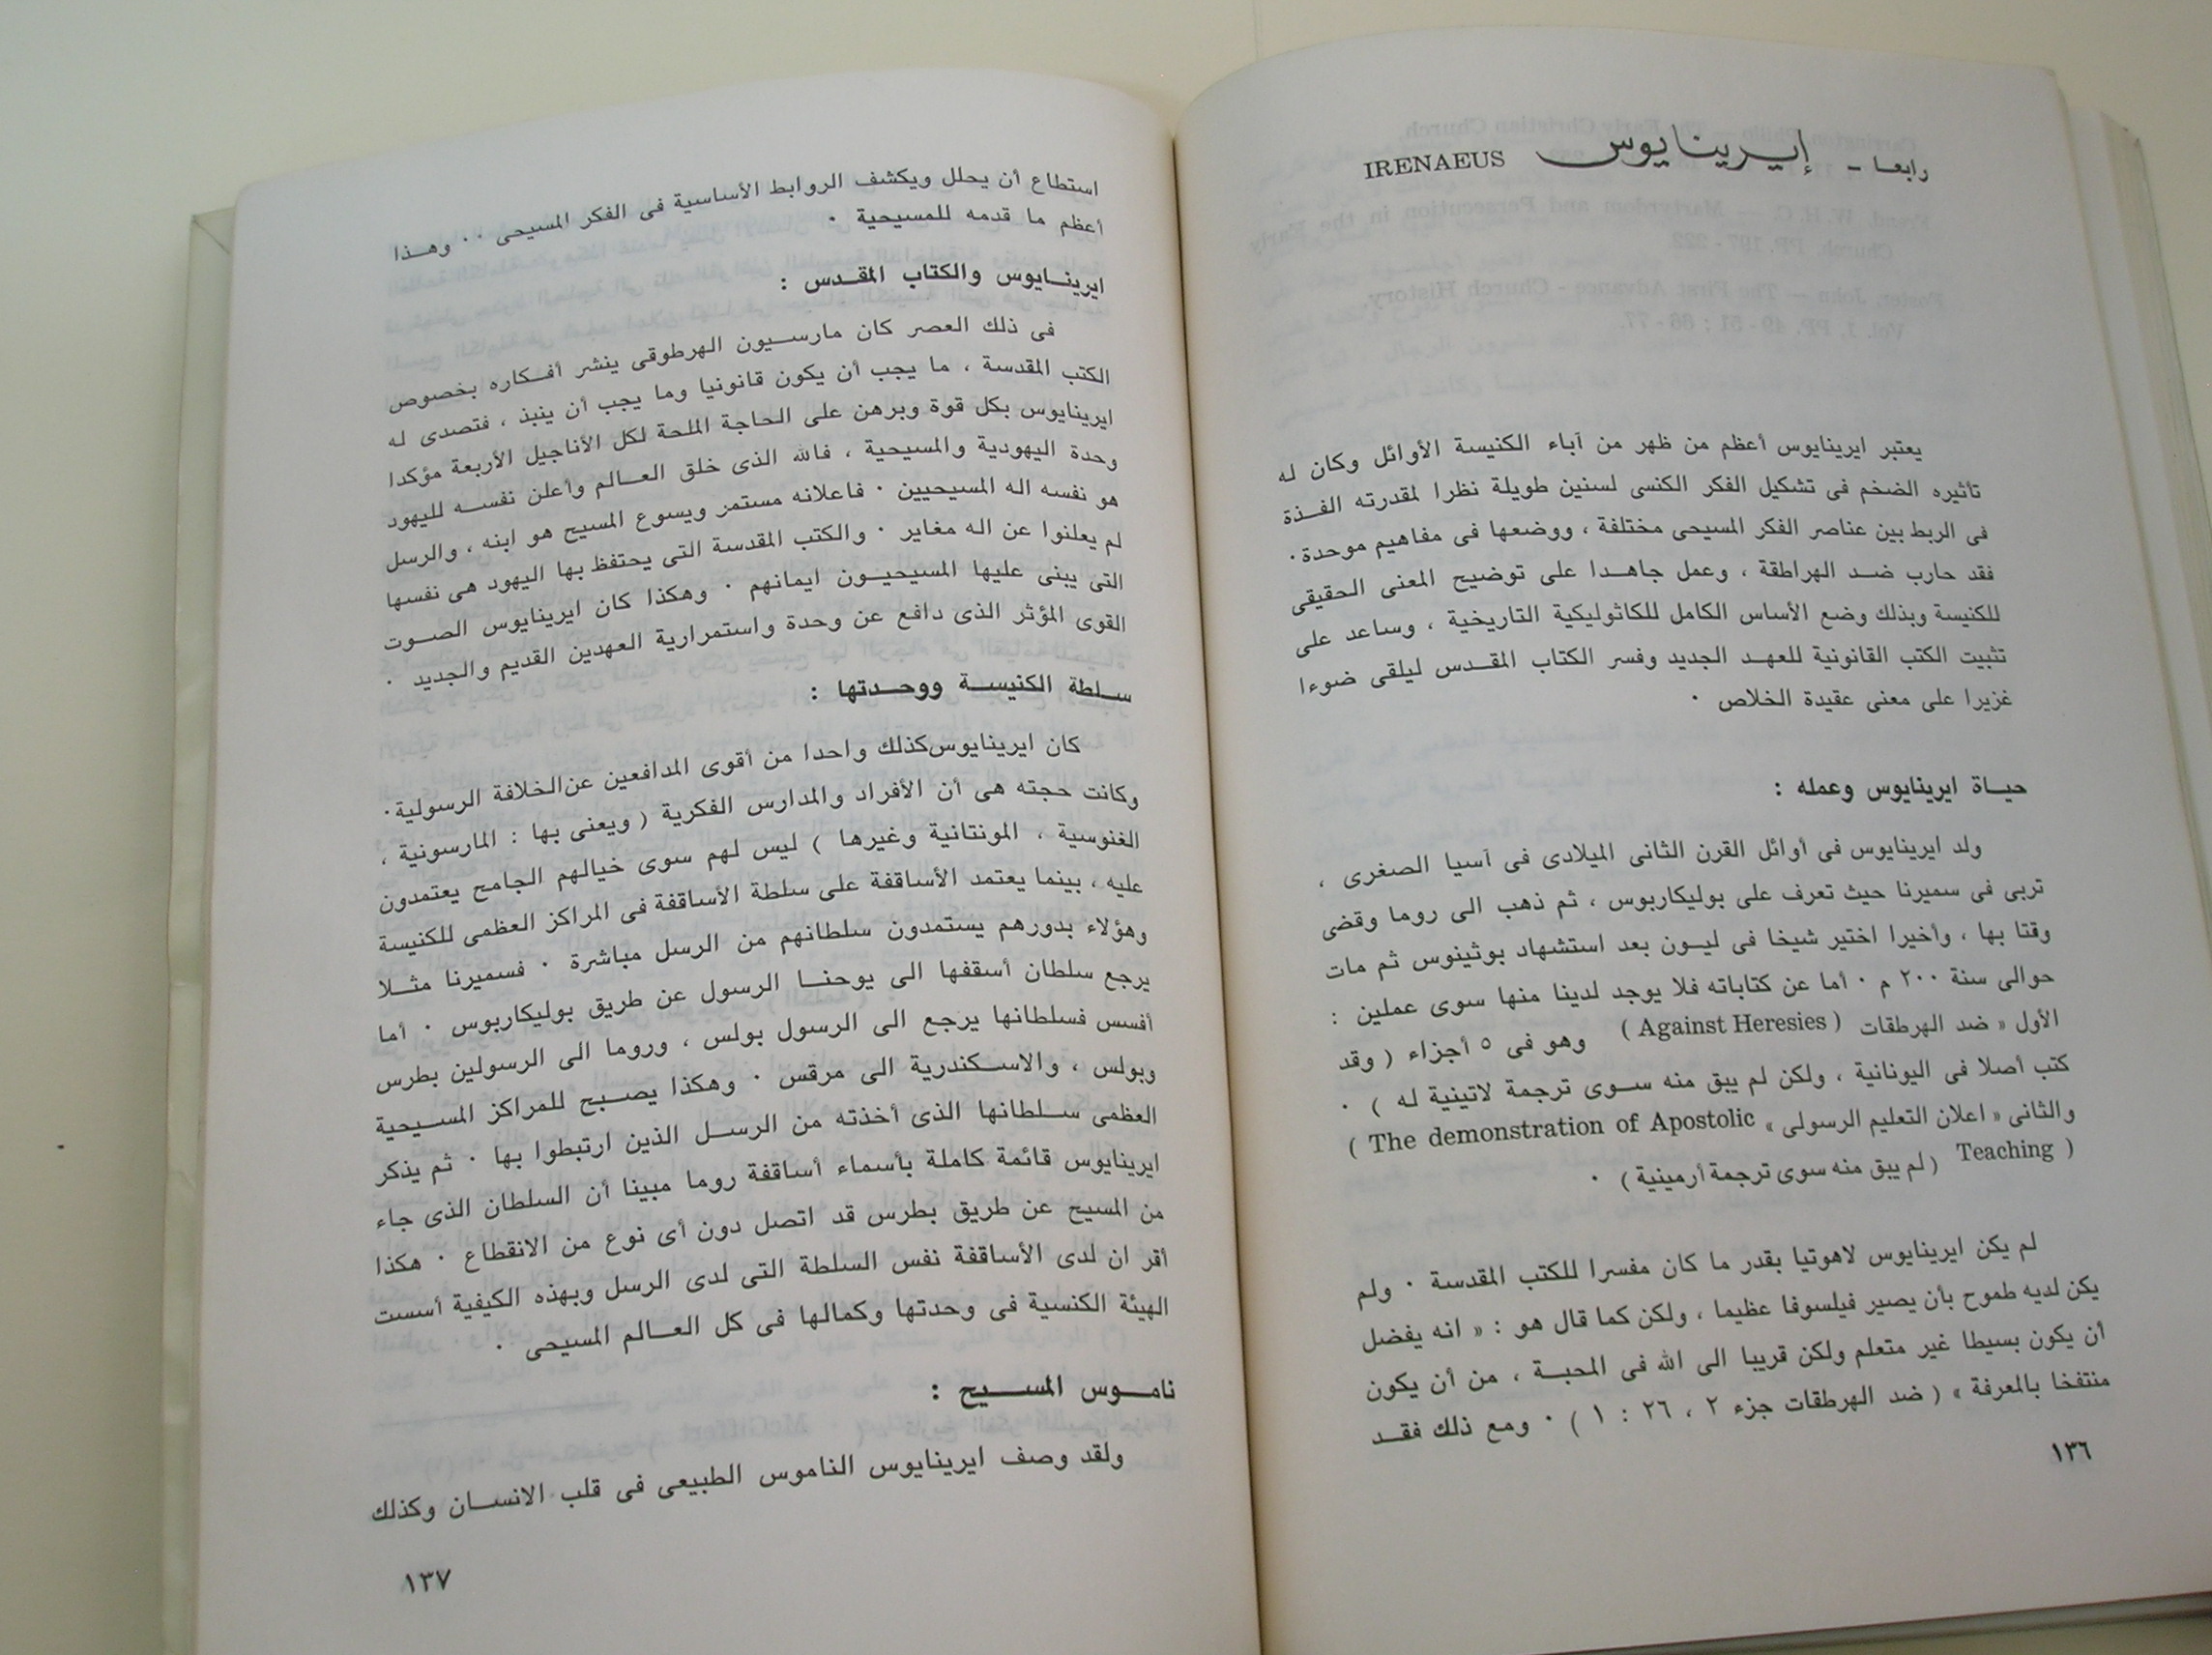 رابعا - إيرينايوس IRENAEUS
يعتبر ايرينايوس أعظم من ظهر من آباء الكنيسة الأوائل وكان له
تأثيره الضخم فى تشكيل الفكر الكنسى لسنين طويلة نظرا لمقدرته الفذة
فى الربط بين عناصر الفكر المسيحى مختلفة ، ووضعها فى مفاهيم موحدة ٠
فقد حارب ضد الهراطقة ، وعمل جاهدا على توضيح المعنى الحقيقى
للكنيسة وبذلك وضع الأساس الكامل للكاثوليكية التاريخية ، وساعد على
تثبيت الكتب القانونية للعهد الجديد وفسر الكتاب المقدس ليلقى ضوءا
غزيرا على معنى عقيدة الخلاص ٠
حياة ايرينايوس وعمله :
ولد ايرينايوس فى أوائل القرن الثانى الميلادى فى آسيا الصغرى ،
تربى فى سميرنا حيث تعرف على بوليكاربوس ، ثم ذهب الى روما وقضى
وقتا بها ، وأخيرا اختير شيخا فى ليون بعد استشهاد بوثينوس ثم مات
حوالى سنة ٢٠٠ م ٠ أما عن كتاباته فلا يوجد لدينا منها سوى عملين :
الأول « ضد الهرطقات ( Against Heresies ) وهو فى ٥ أجزاء ( وقد
كتب أصلا فى اليونانية ، ولكن لم يبق منه سوى ترجمة لاتينية له ) ٠
والثانى « اعلان التعليم الرسولى » The demonstration of Apostolic )
( Teaching (لم يبق منه سوى ترجمة أرمينية) ٠
لم يكن ايرينايوس لاهوتيا بقدر ما كان مفسرا للكتب المقدسة ٠ ولم
يكن لديه طموح بأن يصير فيلسوفا عظيما ، ولكن كما قال هو : « انه يفضل
أن يكون بسيطا غير متعلم ولكن قريبا الى الله فى المحبة ، من أن يكون
منتفخا بالمعرفة » ( ضد الهرطقات جزء ٢ ، ٢٦ : ١ ) ٠ ومع ذلك فقد
١٣٦
استطاع أن يحلل ويكشف الروابط الأساسية فى الفكر المسيحى ٠٠ وهذا
أعظم ما قدمه للمسيحية ٠
ايرينايوس والكتاب المقدس :
فى ذلك العصر كان مارسيون الهرطوقى ينشر أفكاره بخصوص
الكتب المقدسة ، ما يجب أن يكون قانونيا وما يجب أن ينبذ ، فتصدى له
ايرينايوس بكل قوة وبرهن على الحاجة الملحة لكل الأناجيل الأربعة مؤكدا
وحدة اليهودية والمسيحية ، فالله الذى خلق العالم وأعلن نفسه لليهود
هو نفسه اله المسيحيين ٠ فاعلانه مستمر ويسوع المسيح هو ابنه ، والرسل
لم يعلنوا عن اله مغاير ٠ والكتب المقدسة التى يحتفظ بها اليهود هى نفسها
التى يبنى عليها المسيحيون ايمانهم ٠ وهكذا كان ايرينايوس الصوت
القوى المؤثر الذى دافع عن وحدة واستمرارية العهدين القديم والجديد ٠
سلطة الكنيسة ووحدتها :
كان ايرينايوس كذلك واحدا من أقوى المدافعين عن الخلافة الرسولية ٠
وكانت حجته هى أن الأفراد والمدارس الفكرية ( ويعنى بها : المارسونية ،
الغنوسية ، المونتانية وغيرها ) ليس لهم سوى خيالهم الجامح يعتمدون
عليه ، بينما يعتمد الأساقفة على سلطة الأساقفة فى المراكز العظمى للكنيسة
وهؤلاء بدورهم يستمدون سلطانهم من الرسل مباشرة ٠ فسميرنا مثلا
يرجع سلطان أسقفها الى يوحنا الرسول عن طريق بوليكاربوس ٠ أما
أفسس فسلطانها يرجع الى الرسول بولس ، وروما الى الرسولين بطرس
وبولس ، والاسكندرية الى مرقس ٠ وهكذا يصبح للمراكز المسيحية
العظمى سلطانها الذى أخذته من الرسل الذين ارتبطوا بها ٠ ثم يذكر
ايرينايوس قائمة كاملة بأسماء أساقفة روما مبينا أن السلطان الذى جاء
من المسيح عن طريق بطرس قد اتصل دون أى نوع من الانقطاع ٠ هكذا
أقر ان لدى الأساقفة نفس السلطة التى لدى الرسل وبهذه الكيفية أسست
الهيئة الكنسية فى وحدتها وكمالها فى كل العالم المسيحى ٠
ناموس المسيح :
ولقد وصف ايرينايوس الناموس الطبيعى فى قلب الانسان وكذلك
١٣٧